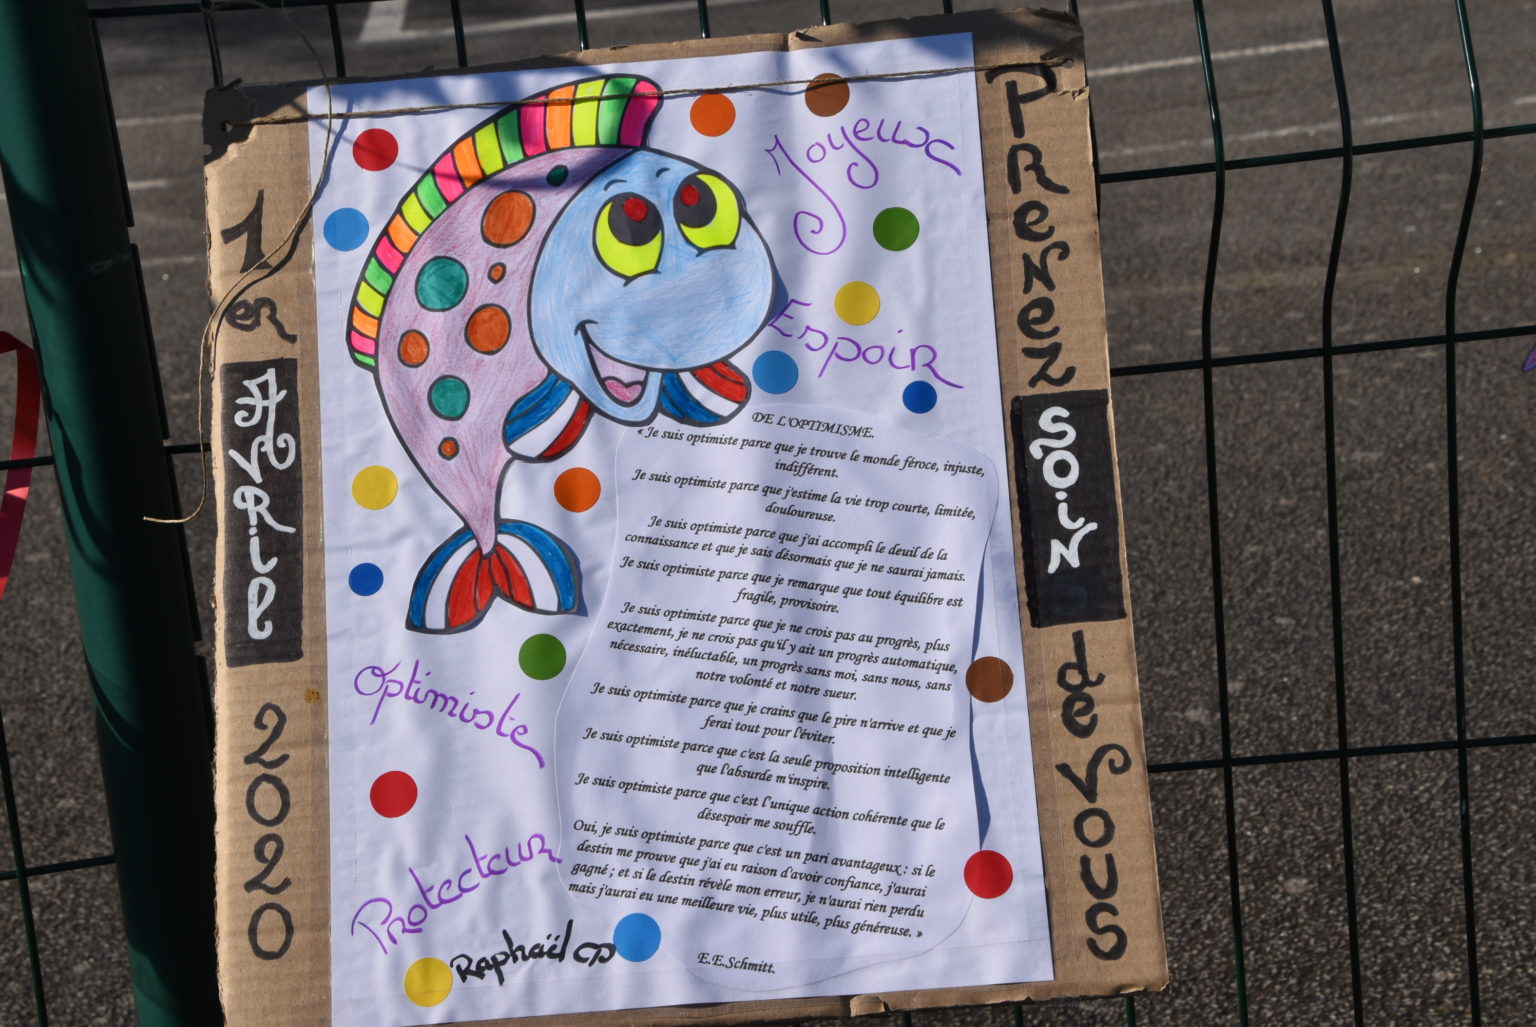 1er
Avril
2020
Joyeux
Espoir
Optimiste
Protecteur
Raphaël CP
DE L'OPTIMISME.
« Je suis optimiste parce que je trouve le monde féroce, injuste,
indifférent.
Je suis optimiste parce que j'estime la vie trop courte, limitée,
douloureuse.
Je suis optimiste parce que j'ai accompli le deuil de la
connaissance et que je sais désormais que je ne saurai jamais.
Je suis optimiste parce que je remarque que tout équilibre est
fragile, provisoire.
Je suis optimiste parce que je ne crois pas au progrès, plus
exactement, je ne crois pas qu'il y ait un progrès automatique,
nécessaire, inéluctable, un progrès sans moi, sans nous, sans
notre volonté et notre sueur.
Je suis optimiste parce que je crains que le pire n'arrive et que je
ferai tout pour l'éviter.
Je suis optimiste parce que c'est la seule proposition intelligente
que l'absurde m'inspire.
Je suis optimiste parce que c'est l'unique action cohérente que le
désespoir me souffle.
Oui, je suis optimiste parce que c'est un pari avantageux : si le
destin me prouve que j'ai eu raison d'avoir confiance, j'aurai
gagné ; et si le destin révèle mon erreur, je n'aurai rien perdu
mais j'aurai eu une meilleure vie, plus utile, plus généreuse. »
E.E.Schmitt.
PRENEZ
SOIN
de
VOUS